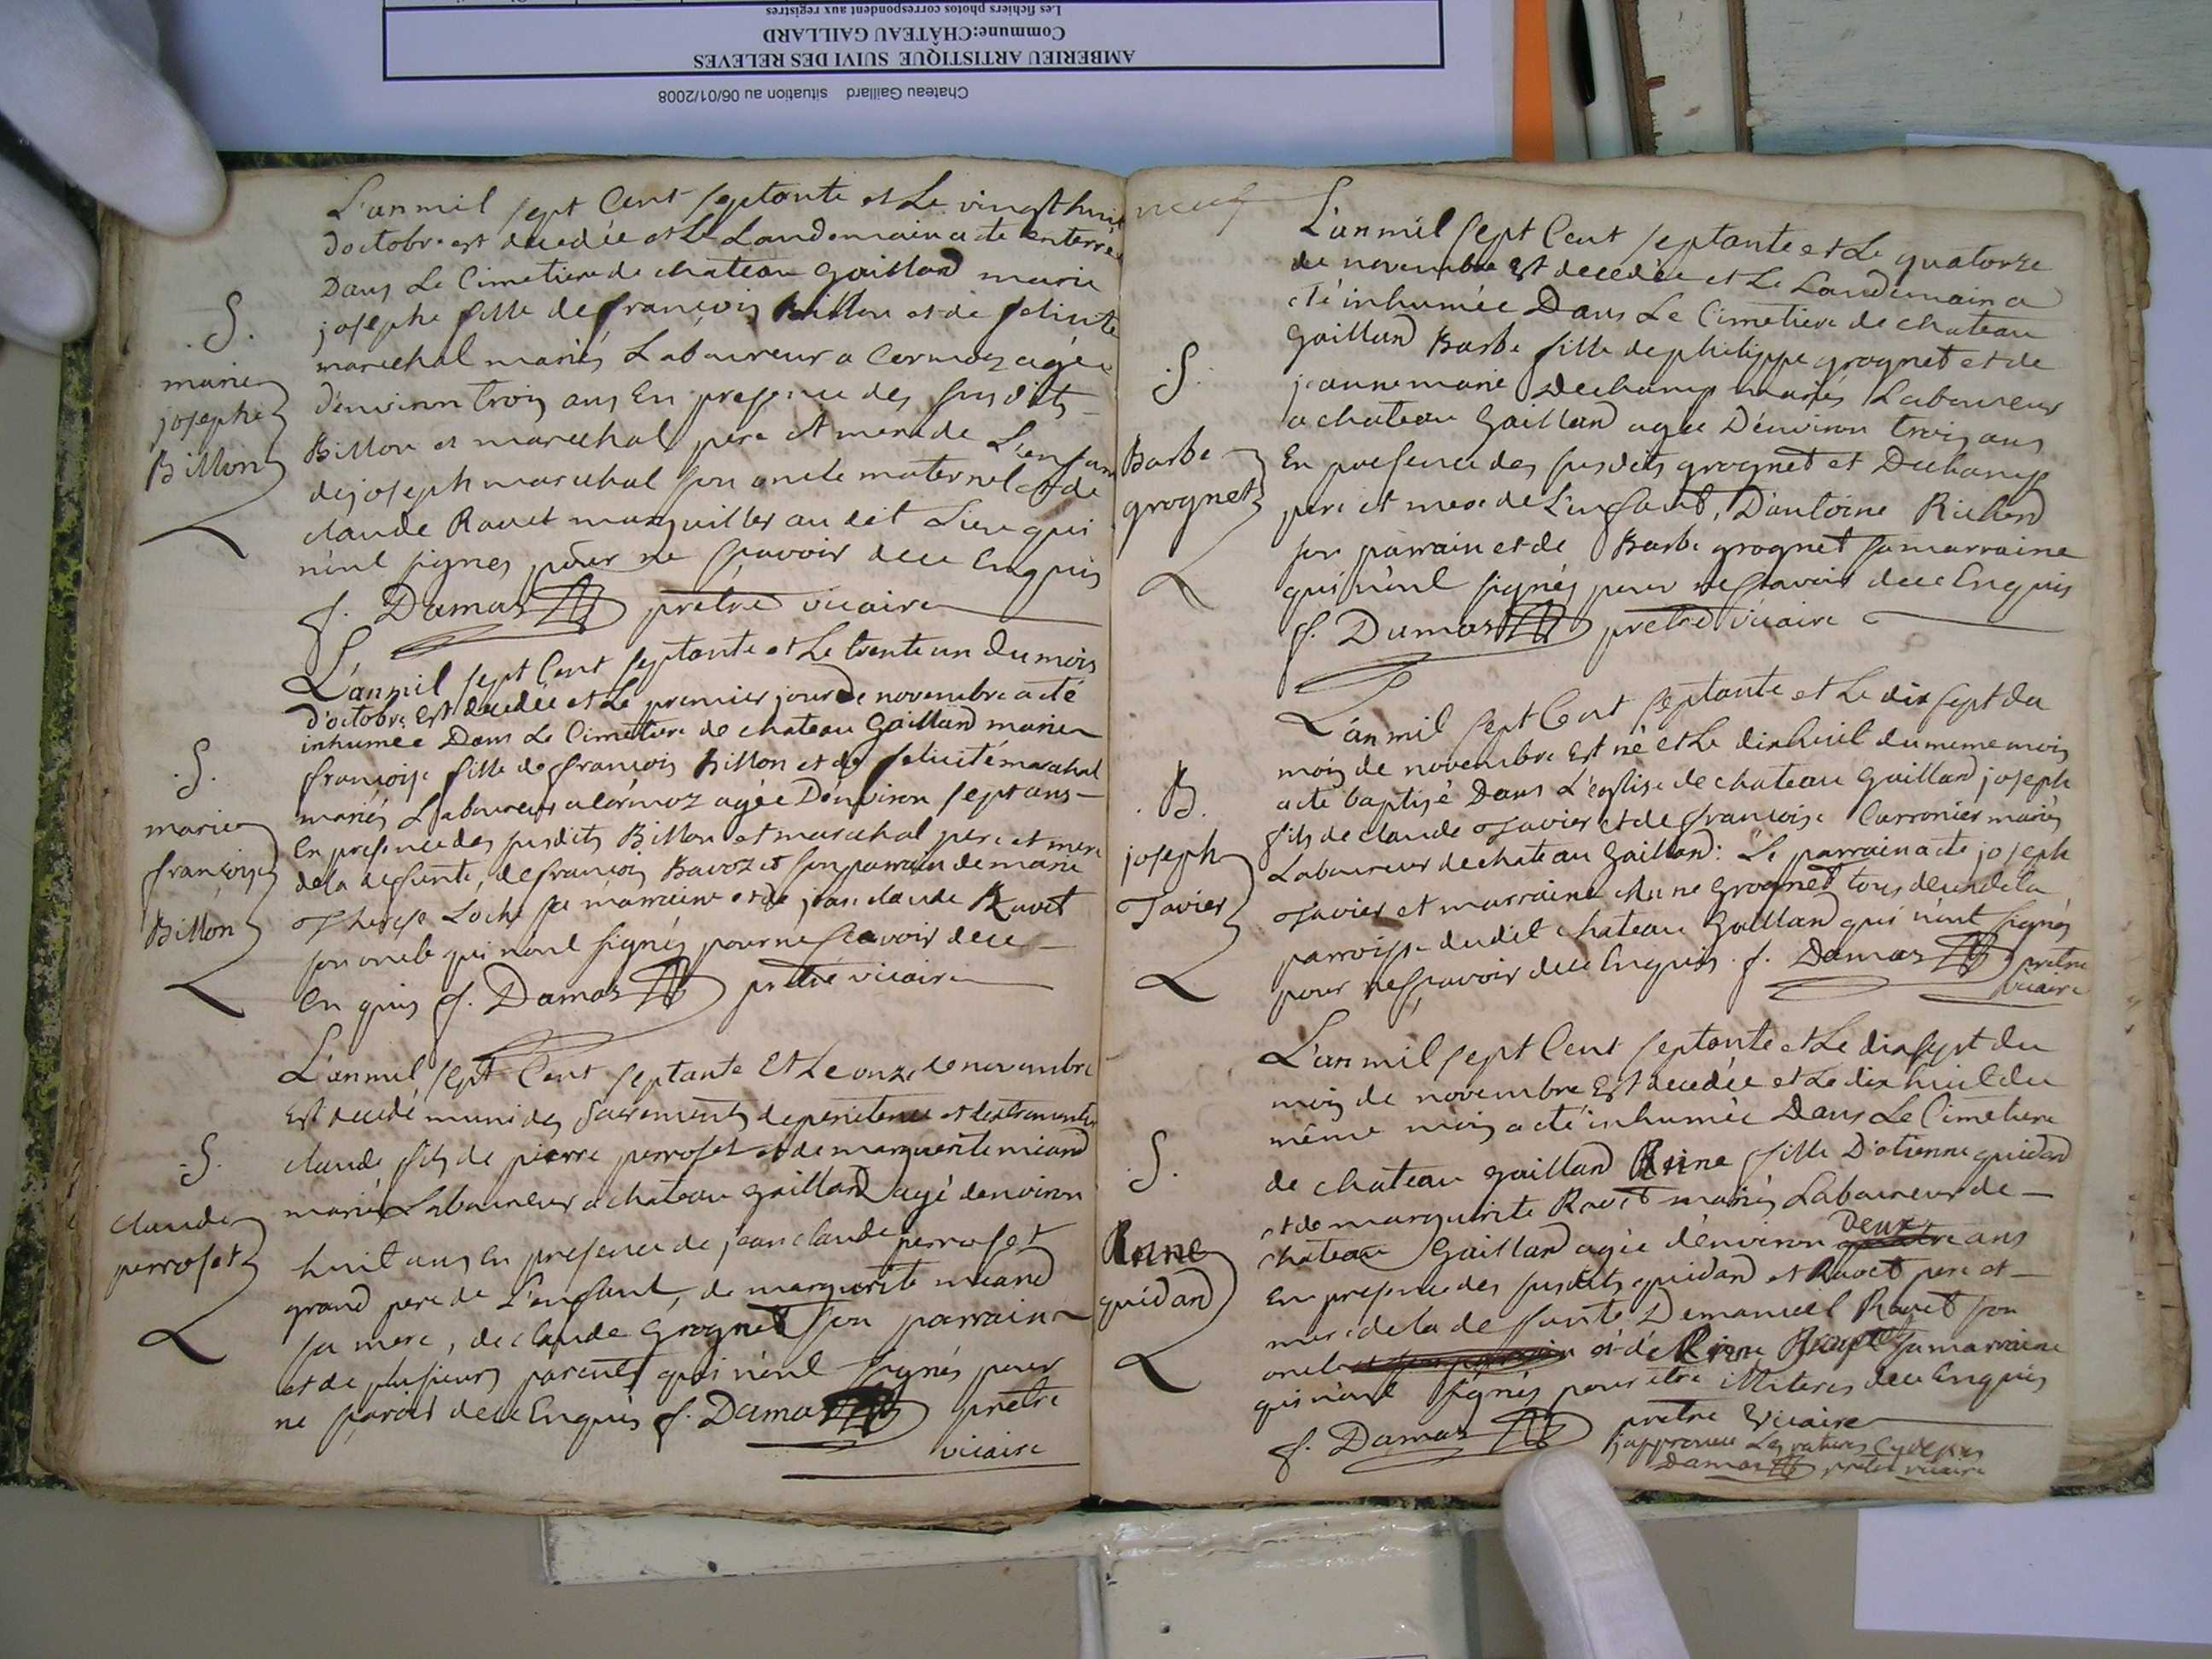 Chateau Gaillard situation au 06/01/2008
AMBERIEU ARTISTIQUE SUIVI DES RELEVES
Commune:CHÂTEAU GAILLARD
Les fichiers photos correspondent aux registres
L'an mil sept Cent septante et Le vingt huit
d'octobre est decedée et Le Landemain a ete enterrée
Dans Le Cimetiere de chateau Gaillard marie
josephe fille de françois Billon et de
marechal mariés Laboureur a Cormoz agée
d'environ trois ans En presence des susdits
Billon et marechal pere et mere de L'enfant
de joseph marechal son oncle maternel et de
claude Ravet marguillier au dit Lieu qui
n'ont signes pour ne sçavoir de ce Enquis
f. Damas prêtre vicaire
.S.
marie
josephe
Billon
L'an mil sept Cent septante et Le trente un du mois
d'octobre Est decedée et Le premier jour de novembre a eté
inhumée Dans Le Cimetiere de chateau Gaillard marie
françoise fille de françois Billon et de felicité marechal
mariés Laboureurs a Cormoz agée D'environ sept ans
En presence des susdits Billon et marechal pere et mere
de la defunte, de françois Bavoz et son parrain de marie
Therese Loche sa marraine et de jean claude Ravet
son oncle qui n'ont signés pour ne sçavoir de ce
En quis f. Damas prêtre vicaire
.S.
marie
françoise
Billon
L'an mil sept Cent septante Et Le onze de novembre
Est decedé muni des sacrements de penitence et
claude fils de pierre perroset et de marguerite miand
mariés Laboureur a chateau gaillard agé d'environ
huit ans En presence de jean claude perroset
grand pere de L'enfant, de marguerite miand
sa mere, de claude Grognet son parrain
et de plusieurs parents qui n'ont signés pour
ne sçavoir de ce Enquis f. Damas prêtre
vicaire
.S.
claude
perroset
neuf
L'an mil sept Cent septante et Le quatorze
de novembre Est decedée et Le Landemain a
eté inhumée Dans Le Cimetiere de chateau
Gaillard Barbe fille de philippe grognet et de
jeanne marie Dechamp mariés Laboureur
a chateau Gaillard agée D'environ trois ans
En presence des susdits grognet et Dechamp
pere et mere de L'enfant, D'antoine Richard
son parrain et de Barbe grognet sa marraine
qui n'ont signés pour ne sçavoir de ce Enquis
f. Damas prêtre vicaire
.S.
Barbe
grognet
L'an mil sept Cent septante et Le dix sept du
mois de novembre Est né et Le dix huit du meme mois
a eté baptisé Dans L'eglise de chateau Gaillard joseph
fils de claude Tavier et de françoise Carronier mariés
Laboureur de chateau Gaillard: Le parrain a eté joseph
Tavier et marraine Anne Grognet tous deux de la
parroisse dudit chateau Gaillard qui n'ont signés
pour ne sçavoir de ce Enquis. f. Damas prêtre
vicaire
.B.
joseph
Tavier
L'an mil sept Cent septante et Le dix sept du
mois de novembre Est decedée et Le dix huit du
même mois a eté inhumée Dans Le Cimetiere
de chateau gaillard Reine fille D'etienne guidard
et de marguerite Ravet mariés Laboureur de
deux
chateau Gaillard agée d'environ ans
En presence des susdits guidard et Ravet pere et
mere de la defunte D'emanuel Ravet son
oncle et de Reine sa marraine
qui n'ont signés pour etre illiteres de ce Enquis
f. Damas prêtre Vicaire
j'approuve Les ratures Cy dessus
Damas prêtre vicaire
.S.
Reine
guidard